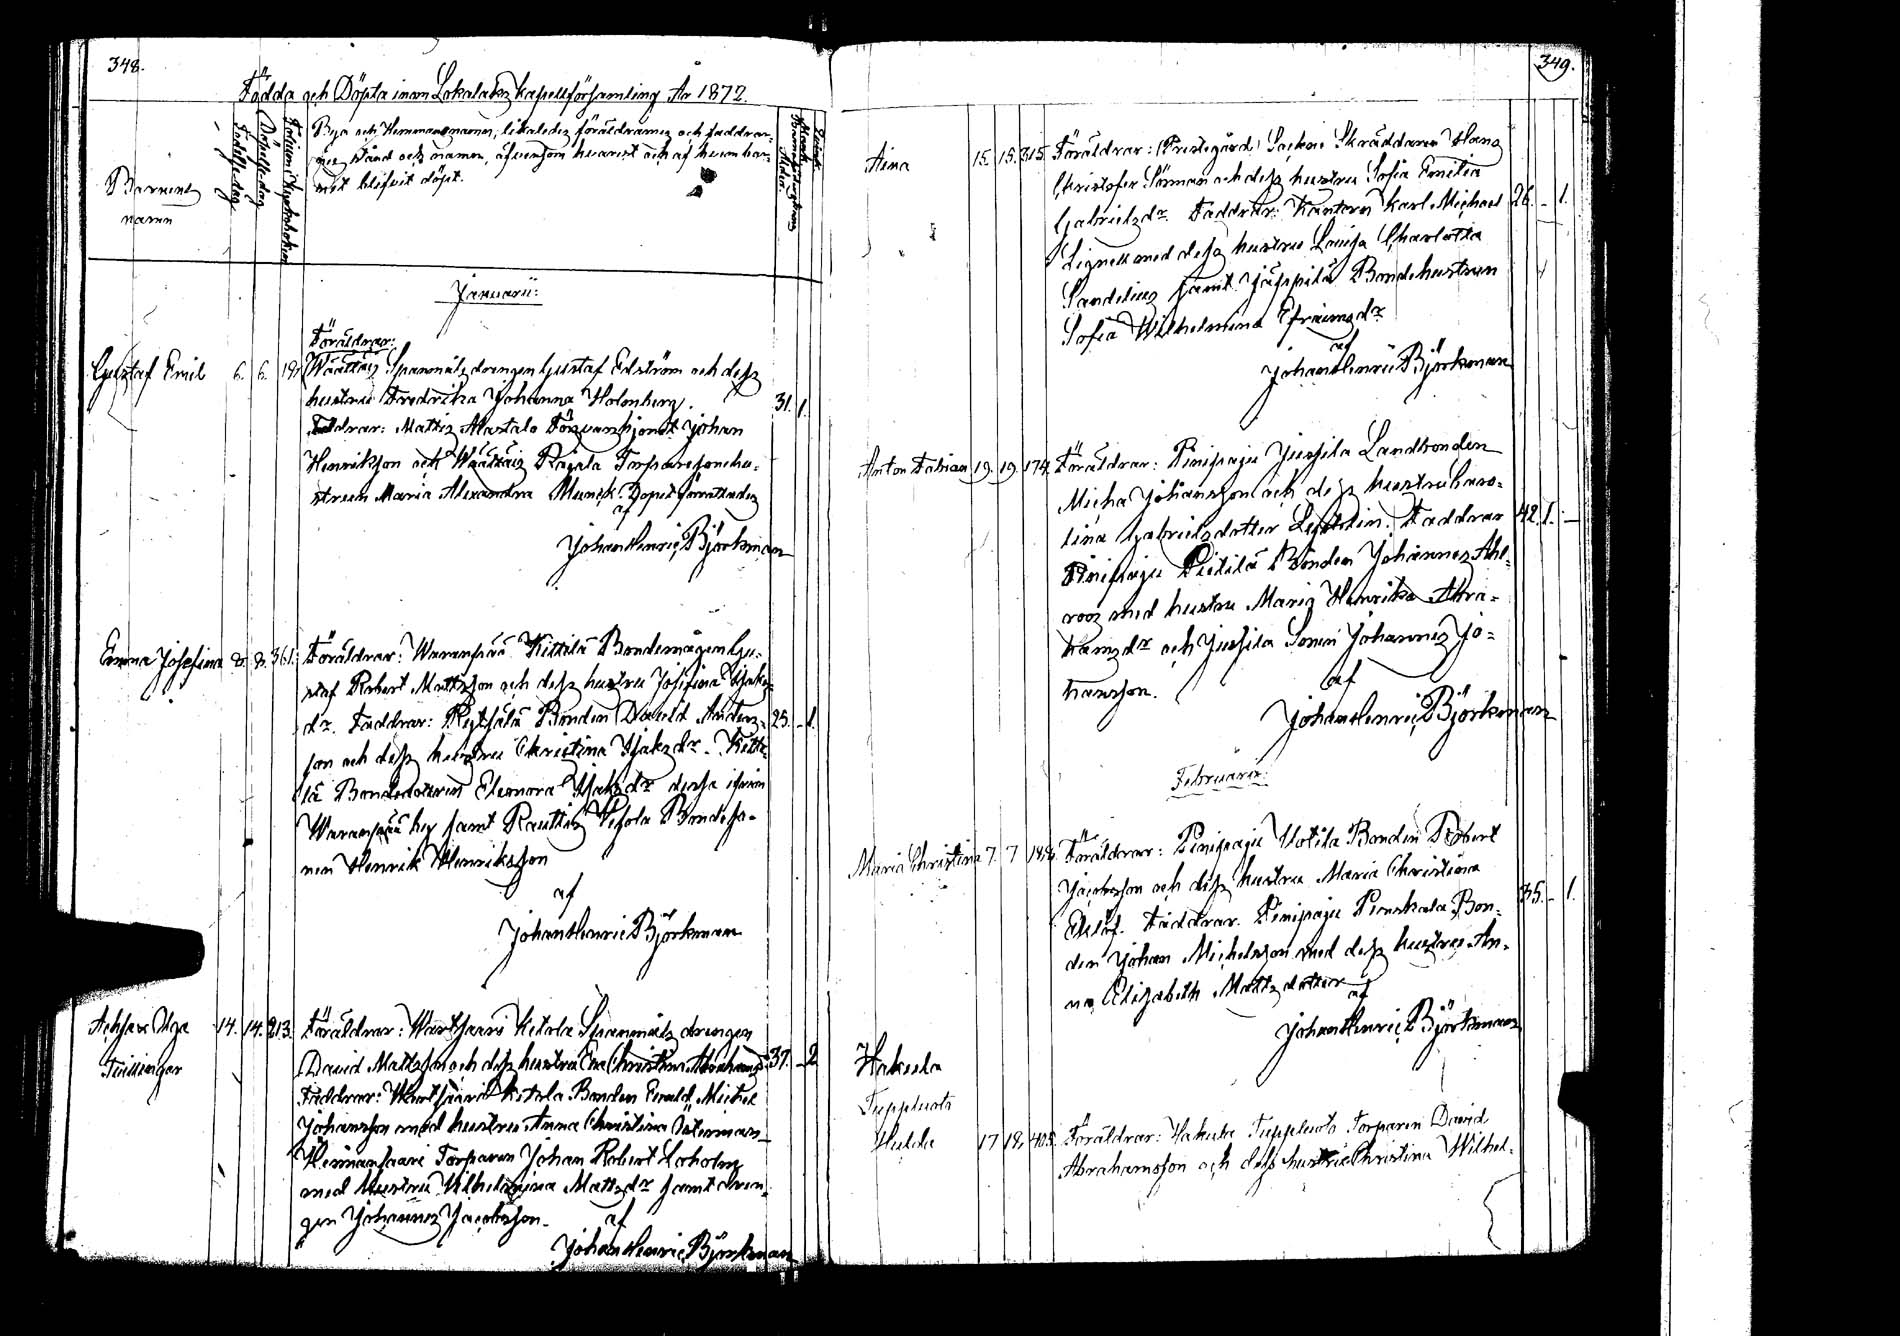 348.
Födda och Döpta inom Lokalaks kapellförsamling År 1872.
Barnens
namn
Födelsedag
Döpelsedag
Sidan i Kyrkoboken
Bya och Hemmansnamn, likaledes föräldrarnes och faddrar-
nes stånd och namn, äfvensom hvarest och af hvem bar-
net blifvit döpt.
Moders
Ålder
Januarii:
Föräldrar:
Gustaf Emil 6. 6. 191 Wäättäis Spanmålsdrengen Gustaf Edström och dess
hustru Fredrika Johanna Holmberg. 31. 1.
Faddrar: Mattis Alastalo Johan
Henriksson och Wäättäis Rajala
Maria Alexandra Munck. Dopet förrättades
af
Johan Henric Björkman
Emma Josefina 8. 8. 361. Föräldrar: Waranpää Kittilä Bondemågen Gu-
staf Robert Mattsson och dess hustru Josefina Isaks-
dr. Faddrar: Bonden David Anders- 25. - 1.
son och dess hustru Christina Isaksdr. Kitti-
lä Bondedottren Eleonora Isaksdr dessa ifrån
Waranpää by samt Rautis Bondeso-
nen Henrik Henriksson
af
Johan Henric Björkman
14. 14. 213. Föräldrar: Wartsaari Ketola Spanmåls drengen
David Mattsson och dess hustru Eva Christina Abrahamsdr 37. - 2
Faddrar: Wartsaari Ketola Bonden Michel
Johansson med hustru Anna Christina Österman
Torparen Johan Robert
med hustru Wilhelmina Mattsdr samt dren-
gen Johannes Jacobsson.
af
Johan Henric Björkman
349.
Aina 15. 15. 315. Föräldrar: (Prestegård) Socken Skräddaren Hans
Christofer Sörman och dess hustru Sofia Emilia
Gabrielsdr. Faddrar: Kantorn Karl Michael 26. - 1.
Lignell med dess hustru Lovisa Charlotta
Sandelius samt Jäppilä Bondehustrun
Sofia Wilhelmina Efraimsdr
af
Johan Henric Björkman
Anton Fabian 19. 19. 174. Föräldrar: Pinipaju Jussila Landbonden
Micha Johansson och dess hustru Caro-
lina Gabrielsdotter. Faddrar 42. 1. -
Pinipaju Pietilä Bonden Johannes Ahl-
roos med hustru Maria Henrika Abra-
hamsdr och Jussila Sonen Johannes Jo-
hansson.
af
Johan Henric Björkman
Februarii:
Maria Christina 7. 7 Föräldrar: Pinipaju Uotila Bonden Robert
Jacobsson och dess hustru Maria Christina
Eklöf. Faddrar. Pinipaju Bon- 35. - 1.
den Johan Michelsson med dess hustru An-
na Elisabeth Mattsdotter
af
Johan Henric Björkman
Hakula
Tuppluoto
Hulda 17 18. 405. Föräldrar: Hakula Tuppluoto Torparen David
Abrahamsson och dess hustru Christina Wilhel-